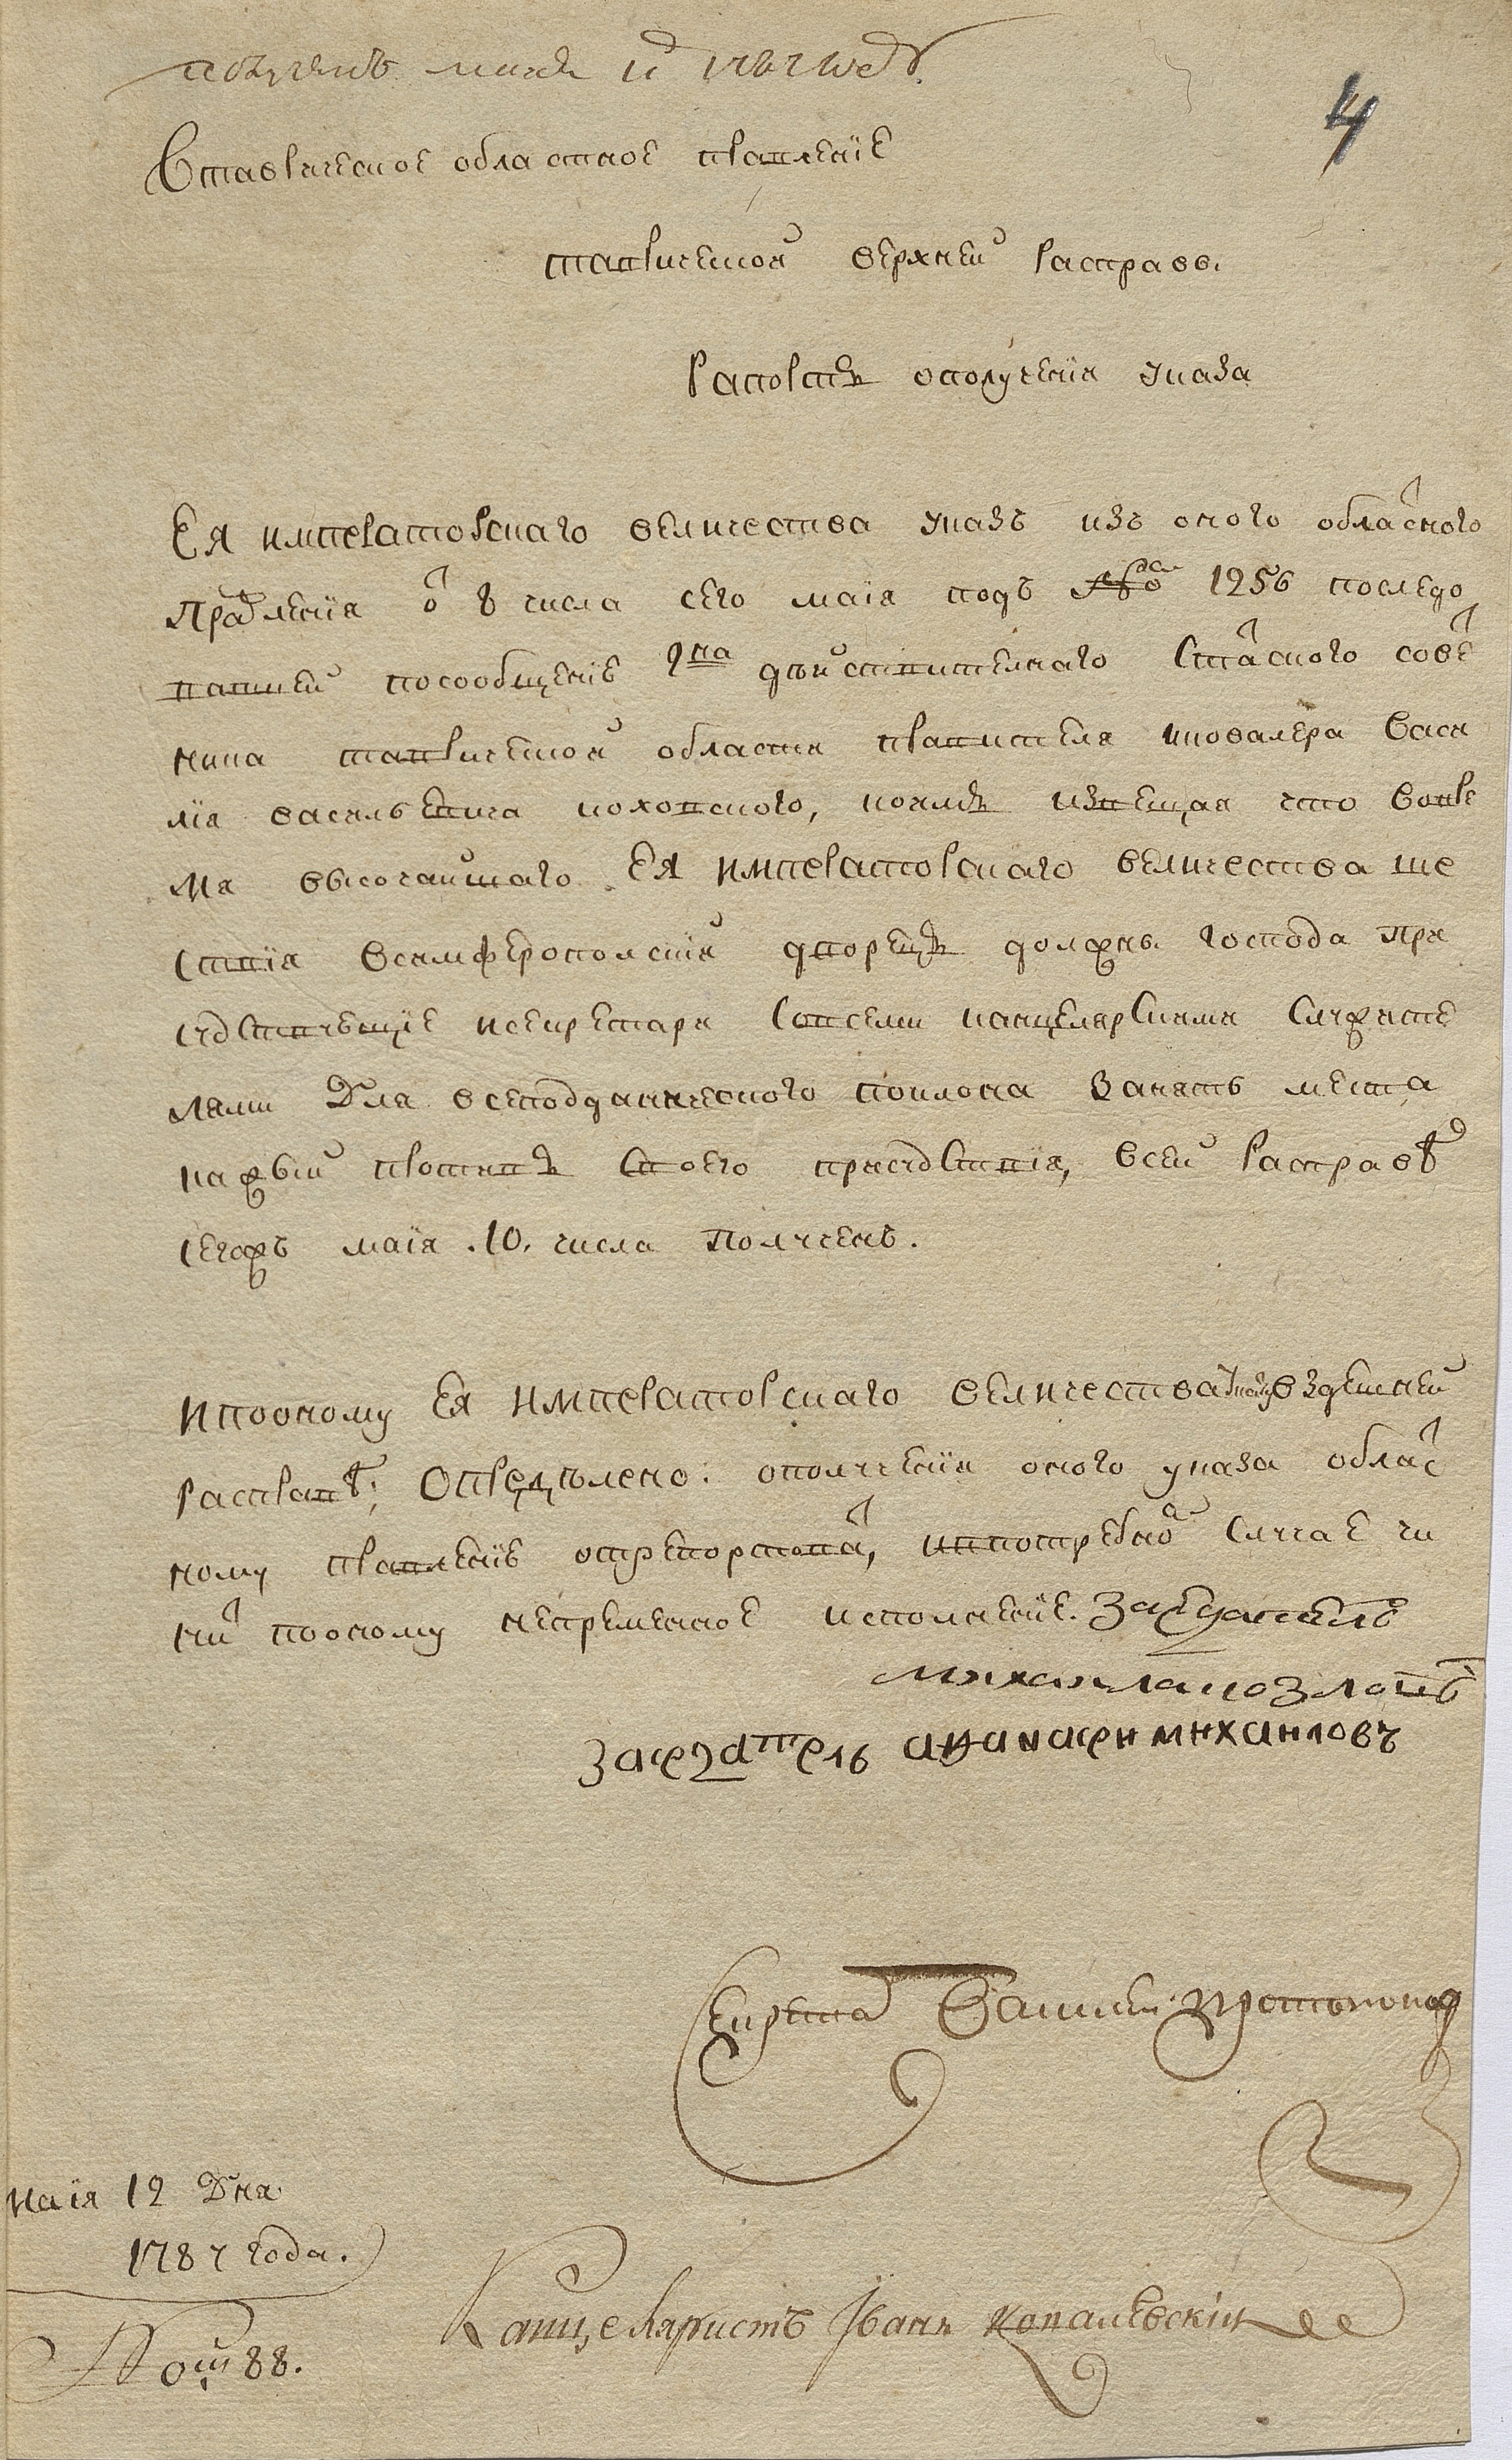 получень маия 12 1787 году
4
Втаврическое областное правление
таврической верхней расправы
Рапортъ ополучения указа
Ея императорскаго величества указъ изъ оного обласного
правления о 8 числа сего маия подъ № 1256 последо
вавшей посообщению гдна действителнаго статского сове
ника таврической области правителя икавалера васи
лия васильевича коховского, коимъ извещая что вовре
мя высочайшаго Ея императорскаго величества ше
ствия всимферополский дворецъ должны господа при
судствующие исекретари совсеми канцелярскими служите
лями для всеподданического поклона занять места
каждый противъ своего присудствия, всей расправѣ
сегожъ маия .10. числа полученъ.
ипооному Ея императорскаго величества указу вздешней
расправѣ; Определено: ополучении оного указа облас
ному правлению отрепортова, ивпотребно случае чи
ни пооному непременное исполнение. Заседатель
михаила козловъ
заседатель афанасеи михаиловъ
Секрета
маия 12 Дня
1787 года.
Канцеляристъ Іванъ Ковалевскій
№ 88.